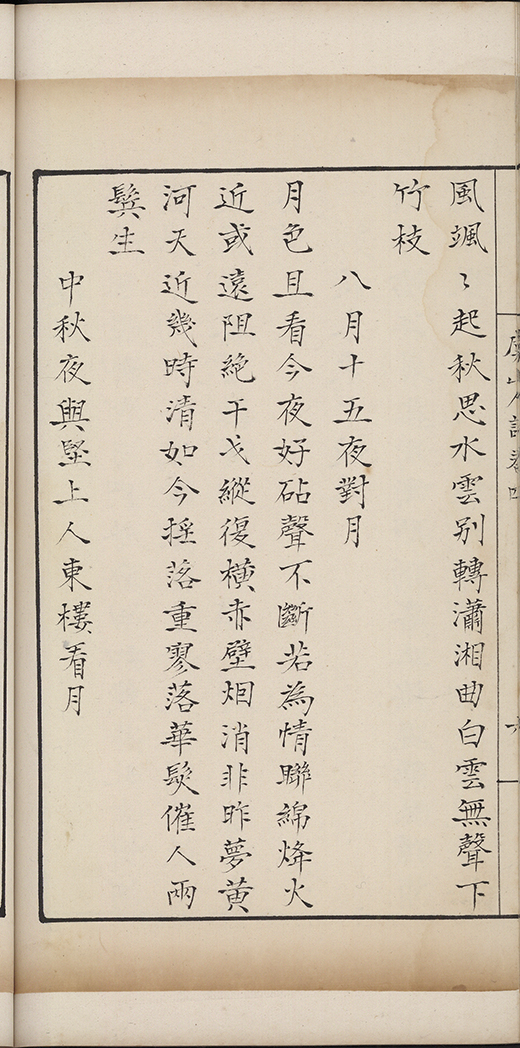 風颯〻起秋思水雲別轉瀟湘曲白雲無聲下
竹枝
八月十五夜對月
月色且看今夜好砧聲不斷若為情聯綿烽火
近或遠阻絶干戈縱復橫赤壁烟消非昨夢黄
河天近幾時清如今揺落重寥落華髮催人兩
鬓生
中秋夜與堅上人東樓看月